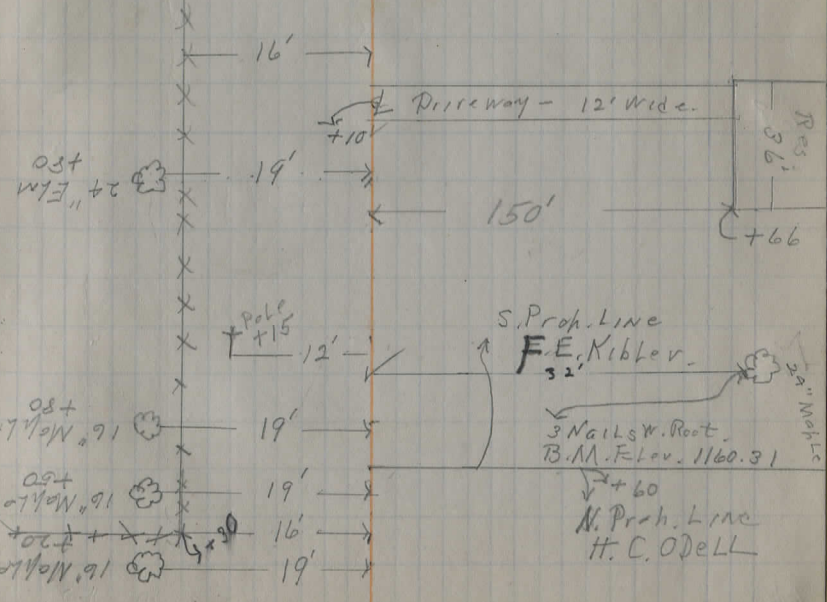 16'
℄ Driveway - 12' Wide.
+10
Res
36'
24" Elm
+80
19'
150'
+66
Pole
+15
12'
S. Prop. Line
F. E. Kibler.
32'
24" Maple
16" Maple
+80
19'
3 Nails W. Root.
B.M. Elev. 1160.31
16" Maple
+50
19'
+60
N. Prop. Line
H. C. ODELL
16'
+30
16" Maple
+20
19'